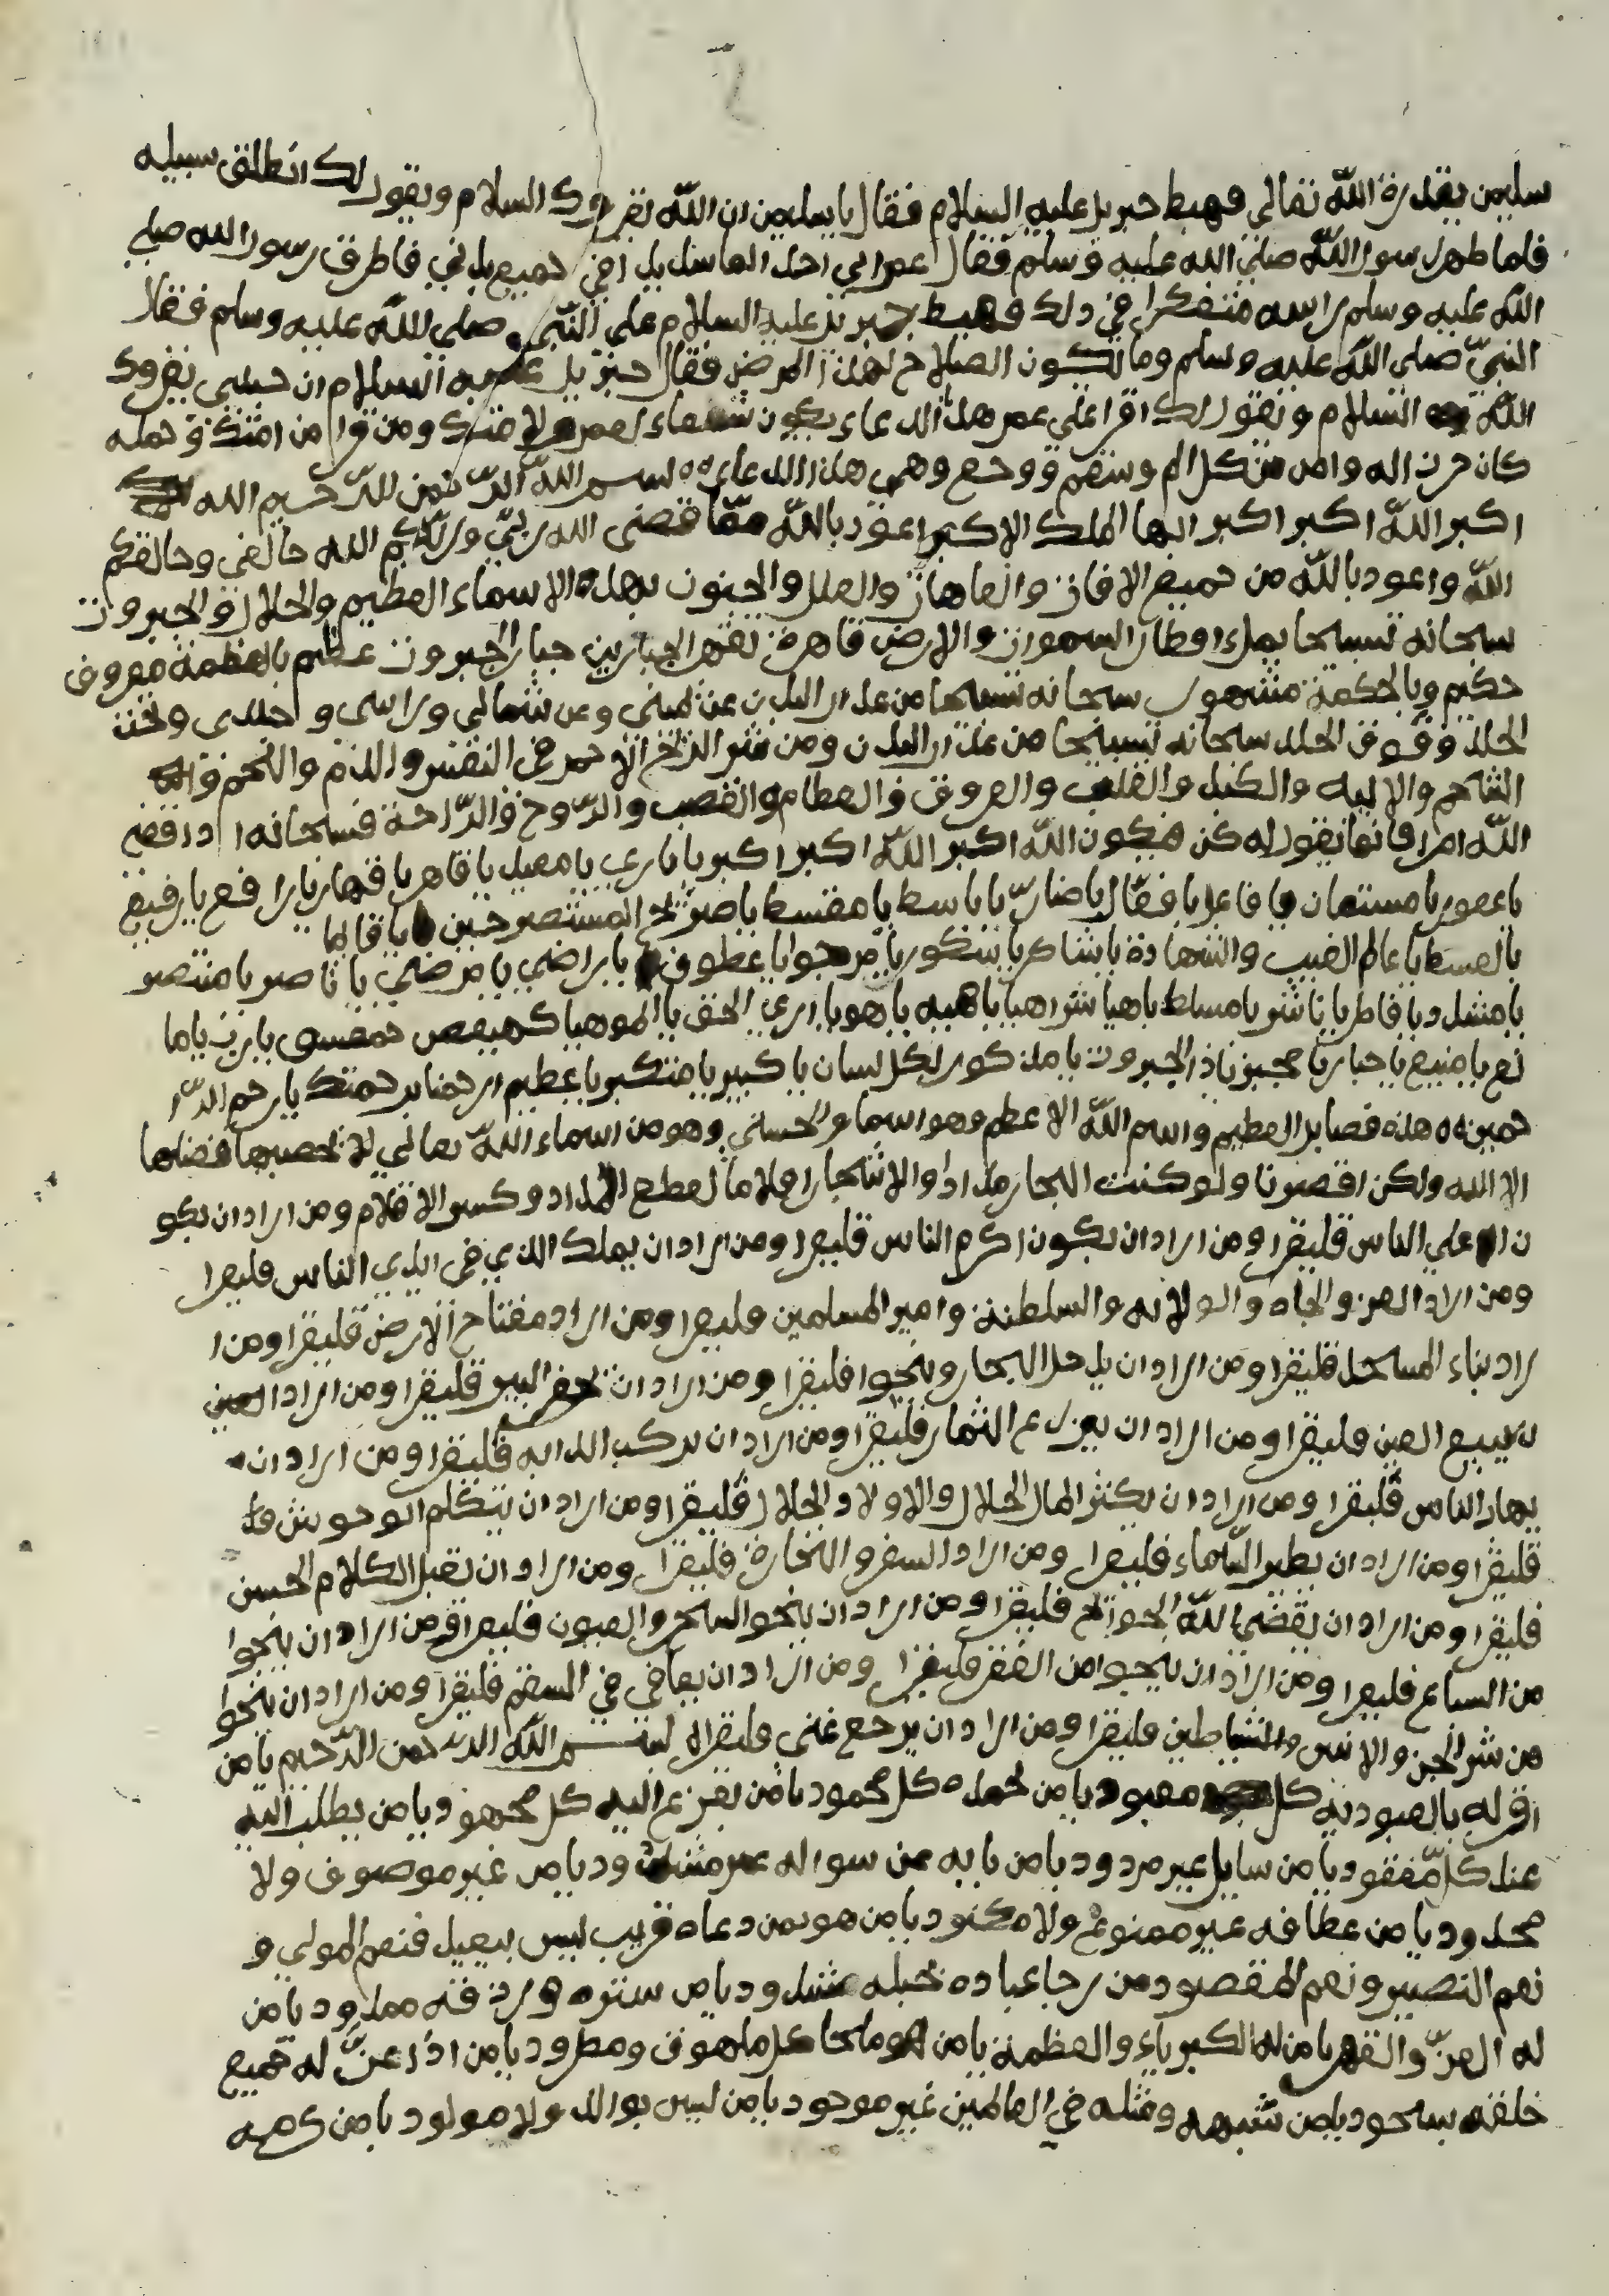 سليمن بقدرة الله تعالى فهبط جبريل عليه السلام فقال يا سليمن ان الله يقروك السلام ويقول لك انطلق سبيله
فلما ظهر رسول الله صلى الله عليه وسلم فقال عمر اني احد الما شديد في جميع بدني فاطرق رسول الله صلى
الله عليه وسلم راسه متفكرا في ذلك فهبط جبريل عليه السلام على النبي صلى الله عليه وسلم فقال
النبي صلى الله عليه وسلم وما يكون الصلاح لهذا المرض فقال جبريل عليه السلام ان حبيبي يقروك
الله السلام ويقول لك اقرا على عمر هذا الدعاء يكون شفاء لعمر ولامتك ومن قرا من امتك وحمله
كان حرزا له وامن من كل الم وسقم ووجع وهي هذا الدعاء بسم الله الرحمن الرحيم الله
اكبر الله اكبر اكبر ايها الملك الاكبر اعوذ بالله مما قضى الله ربي وربكم الله خالقي وخالقكم
الله واعوذ بالله من جميع الافات والعاهات والعلل والجنون بهذه الاسماء العظيم والجلال والجبروت
سبحانه تسبيحا يملء اقطار السموات والارض قاهرة تقهر الجبارين جبار الجبروت عظيم بالعظمة معروف
حكيم وبالحكمة مشهور سبحانه تسبيحا من عدار البدن عن يميني وعن شمالي وراسي و جلدي وتحت
الجلد وفوق الجلد سبحانه تسبيحا من عدار البدن ومن شر الريح الاحمر في النفس والدم واللحم و
الشاحم والاليه والكبد والقلب والعروق والعظام والقصب والروح والراحة فسبحانه اذا قضى
الله امرا فانما يقول له كن فيكون الله اكبر الله اكبر اكبر يا باري يا معيد يا قاهر يا قهار يا رافع يا رفيع
يا غفور يا مستعان يا فاعل يا فعال يا ضار يا باسط يا مقسط يا صريخ المستصرخين يا قايما
بالقسط يا عالم الغيب والشهادة يا شاكر يا شكور يا مرجوا يا عطوف يا راضي يا مرضي يا ناصر يا منتصر
يا مشدد يا فاطر يا ناشر يا مسلط يا هيا شراهيا يا هيه يا هو يا اري الحق يا الموهيا كهيعص حمعسق يا رب يا ما
نع يا منيع يا جبار يا مجبر يا ذا الجبروت يا مذكور بكل لسان يا كبير يا متكبر يا عظيم ارحمنا برحمتك يا رحم الر ا
حمين هذه فضايل العظيم واسم الله الاعظم وهو اسماء الحسنى وهو من اسماء الله تعالى لا يحصيها فضلها
الا الله ولكن اقصرنا ولو كنت البحار مدادا والاشجار اقلاما لقطع المداد وكسر الاقلام ومن اراد ان يكو
ن اعلى الناس فليقرا ومن اراد ان يكون اكرم الناس فليقرا ومن اراد ان يملك الذي في ايدي الناس فليقرا
ومن اراد العز والجاه والولاية والسلطنة وامير المسلمين فليقرا ومن اراد مفتاح الارض فليقرا ومن ا
راد بناء المسجد فليقرا ومن اراد ان يدخل البحار وينجوا فليقرا ومن اراد ان يحفر البير فليقرا ومن اراد العين
ينبيع العين فليقرا ومن اراد ان يزرع الثمار فليقرا ومن اراد ان يركب الدابه فليقرا ومن اراد ان
يهاب الناس فليقرا ومن اراد ان يكثر المال الحلال والاولاد الحلال فليقرا ومن اراد ان يتكلم الوحوش
فليقرا ومن اراد ان يطير السماء فليقرا ومن اراد السفر والتجارة فليقرا ومن اراد ان يقبل الكلام الحسن
فليقرا ومن اراد ان يقضي الله الحوائج فليقرا ومن اراد ان ينجوا السحر والعيون فليقرا ومن اراد ان ينجوا
من السباع فليقرا ومن اراد ان ينجوا من الفقر فليقرا ومن اراد ان يعافي في السقم فليقرا ومن اراد ان ينجوا
من شر الجن والانس والشياطين فليقرا ومن اراد ان يرجع غني فليقرا بسم الله الرحمن الرحيم يا من
اقر له بالعبودية كل معبود يا من يحمده كل محمود يا من يفزع اليه كل مجهود يا من يطلب اليه
عند كل مفقود يا من سايل غير مردود يا من بابه عن سواله غير مشدود يا من غير موصوف ولا
محدود يا من عطافه غير ممنوع ولا مكنود يا من هو من دعاه قريب ليس ببعيد فنعم المولى و
نعم النصير ونعم المقصود من رجا عباده بحبله مشدود يا من ستره ورزقه ممدود يا من
له العز والقهر يا من له الكبرياء والعظمة يا من هو ملجا كل ملهوف ومطرود يا من اذعن له جميع
خلقه بسجود يا من شبهه ومثله في العالمين غير موجود يا من ليس بوالد ولا مولود يا من كرمه